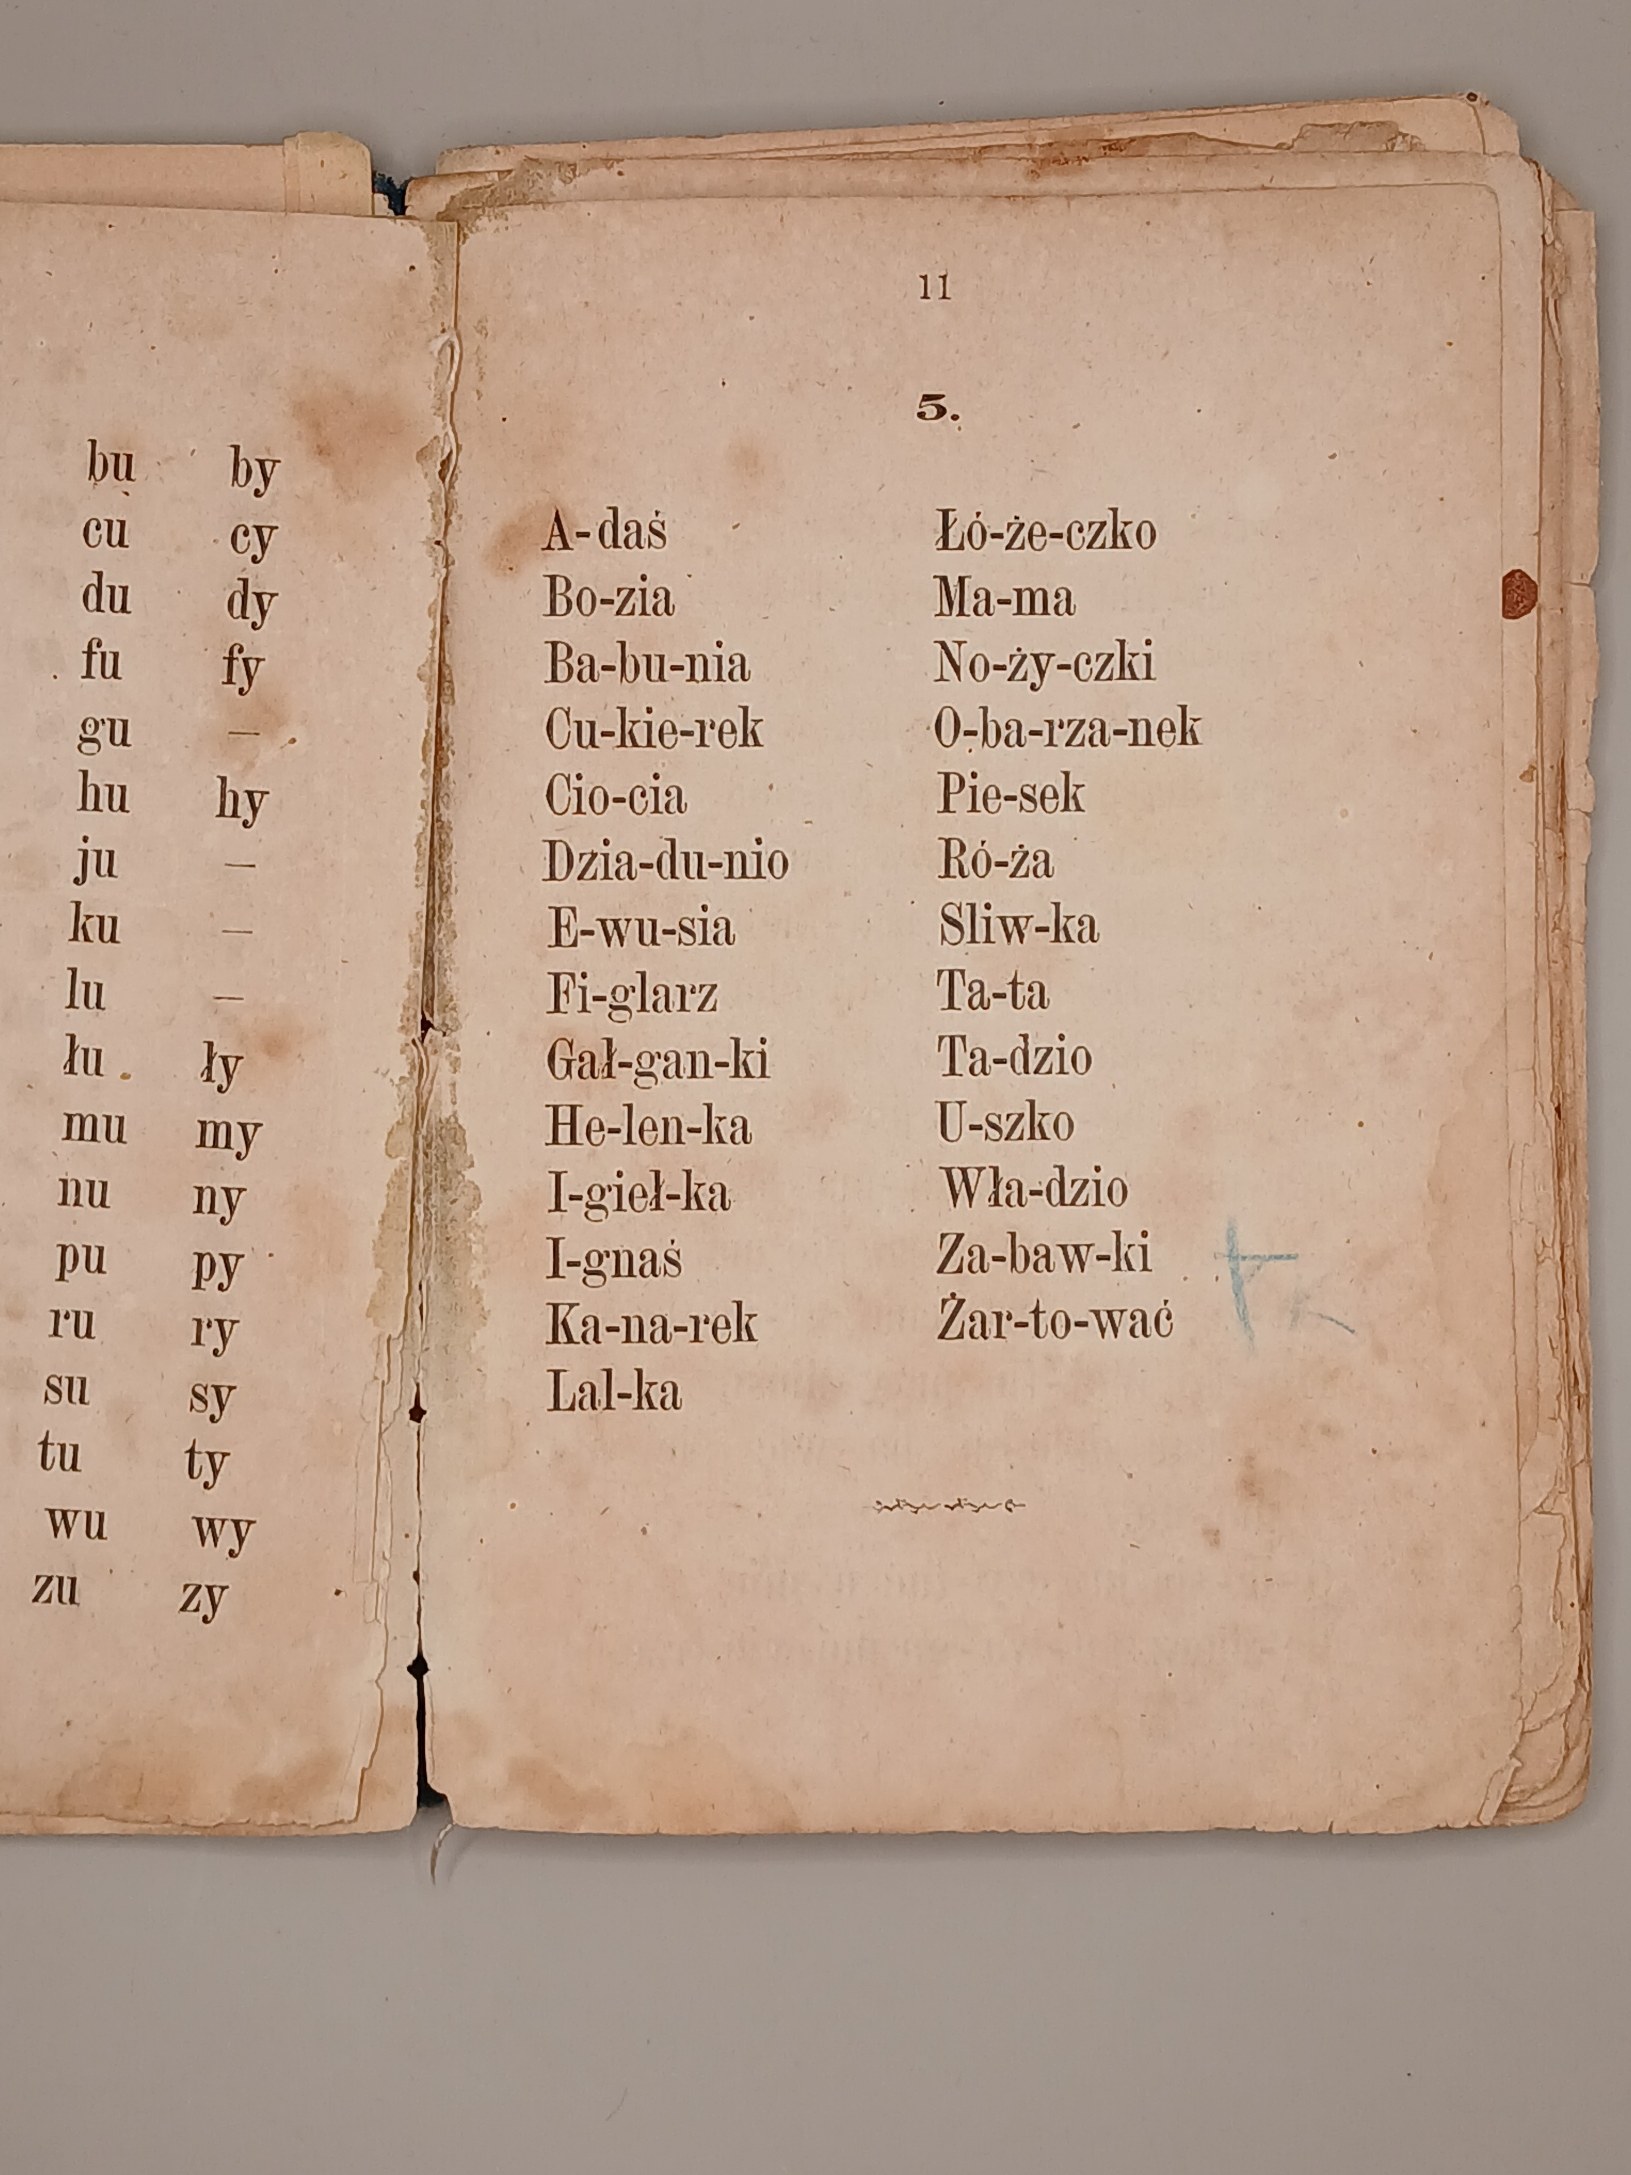 bu by
cu cy
du dy
fu fy
gu —
hu hy
ju —
ku —
lu —
łu ły
mu my
nu ny
pu py
ru ry
su sy
tu ty
wu wy
zu zy
11
5.
A-daś
Bo-zia
Ba-bu-nia
Cu-kie-rek
Cio-cia
Dzia-du-nio
E-wu-sia
Fi-glarz
Gał-gan-ki
He-len-ka
I-gieł-ka
I-gnaś
Ka-na-rek
Lal-ka
Łó-że-czko
Ma-ma
No-ży-czki
O-ba-rza-nek
Pie-sek
Ró-ża
Sliw-ka
Ta-ta
Ta-dzio
U-szko
Wła-dzio
Za-baw-ki
Żar-to-wać